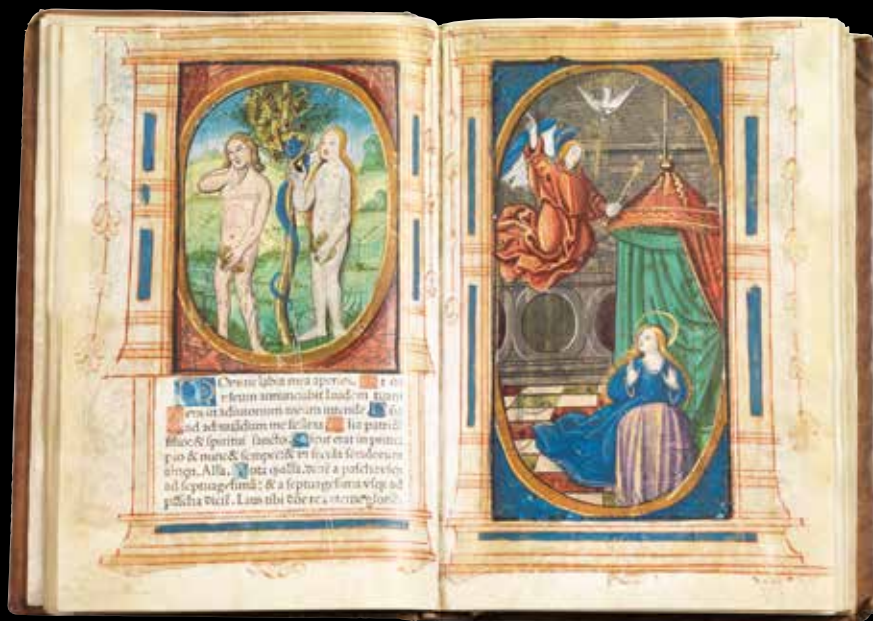 Omine labia mea aperies. Et os
meum annunciabit laudem tuam
eus in adiutorium meum intende. Do
ad adiuuandum me festina. lia patri &
filio & spiritui sancto. Sicut erat in princi
pio & nunc & semper & in secula seculorum
amen. Alla. a pascha vsq
ad septuagesimā: & a septuagesima vsq ad
pascha dicit. Laus tibi dñe rex eterne glorie.